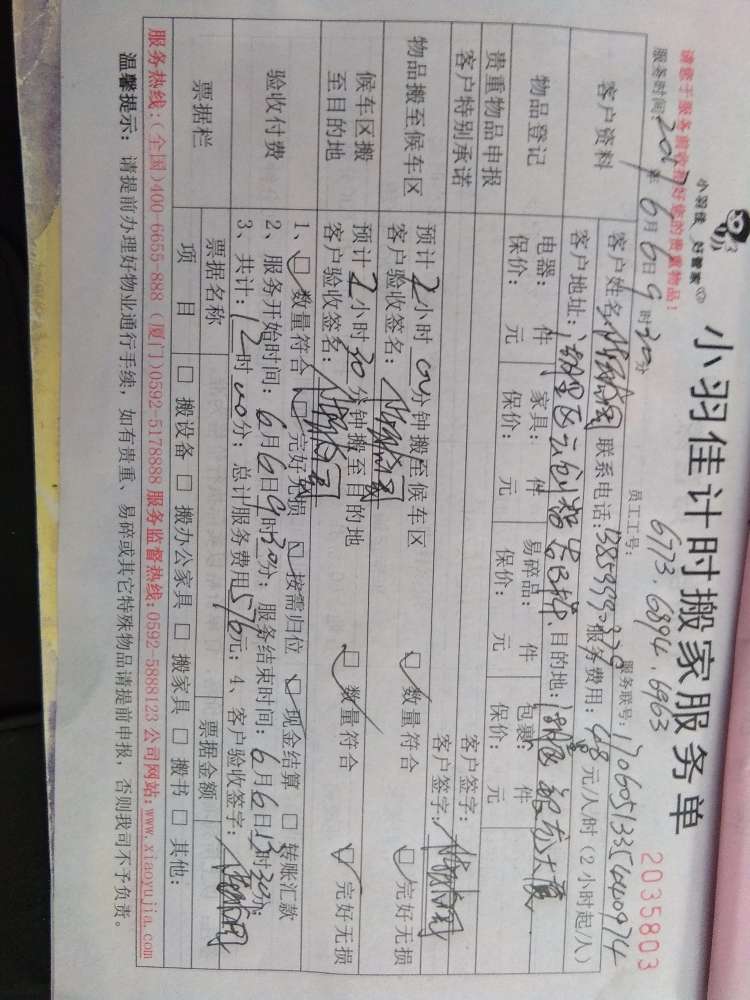 小羽佳 好管家
小羽佳计时搬家服务单
2035803
请您于服务前收拾好您的贵重物品！
员工工号：6773.6894.6903
服务时间：2017年6月6日9时30分
服务联号：
客户资料
客户姓名： 联系电话：
客户地址： 目的地： 服务费用：48元/人时（2小时起/人）
物品登记
电器： 件 家具： 件 易碎品： 件 包裹： 件
保价： 元 保价： 元 保价： 元 保价： 元
贵重物品申报
客户签字：
客户特别承诺
客户签字：
物品搬至候车区
预计2小时00分钟搬至候车区 □数量符合 □完好无损
客户验收签名：
候车区搬至目的地
预计2小时30分钟搬至目的地 □数量符合 □完好无损
客户验收签名：
验收付费
1、□数量符合 □完好无损 □按需归位 □现金结算 □转账汇款
2、服务开始时间：6月6日9时30分；服务结束时间：6月6日13时30分；
3、共计：12时00分；总计服务费用576元；4、客户验收签字：
票据栏
票据名称 票据金额
项目 □搬设备 □搬办公家具 □搬家具 □搬书 □其他：
服务热线：(全国)400-6655-888 (厦门)0592-5178888 服务监督热线：0592-5888123 公司网站：www.xiaoyujia.com
温馨提示：请提前办理好物业通行手续，如有贵重、易碎或其它特殊物品请提前申报，否则我司不予负责。